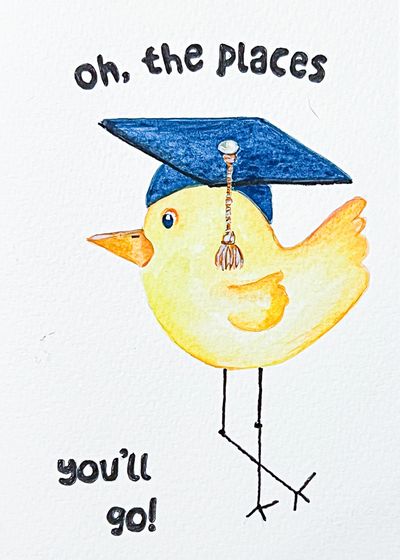 oh, the places
you'll
go!